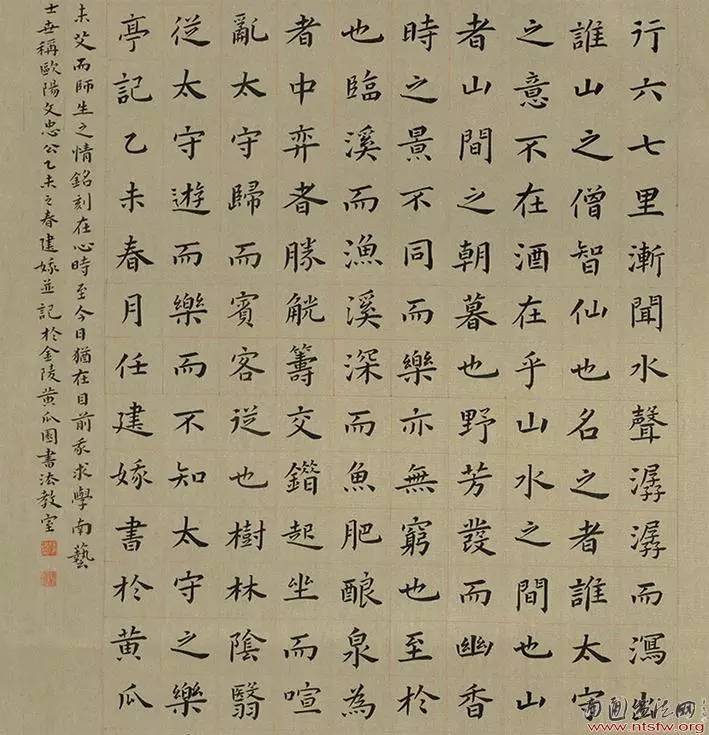 行六七里漸聞水聲潺潺而瀉出
誰山之僧智仙也名之者誰太守
之意不在酒在乎山水之間也山
者山間之朝暮也野芳發而幽香
時之景不同而樂亦無窮也至於
也臨溪而漁溪深而魚肥釀泉為
者中弈者勝觥籌交錯起坐而喧
亂太守歸而賓客從也樹林陰翳
從太守遊而樂而不知太守之樂
亭記乙未春月任建嫁書於黃瓜
未艾而師生之情銘刻在心時至今日猶在目前我求學南藝
士世稱歐陽文忠公乙未之春建嫁並記於金陵黃瓜園書法教室
www.ntsfw.org